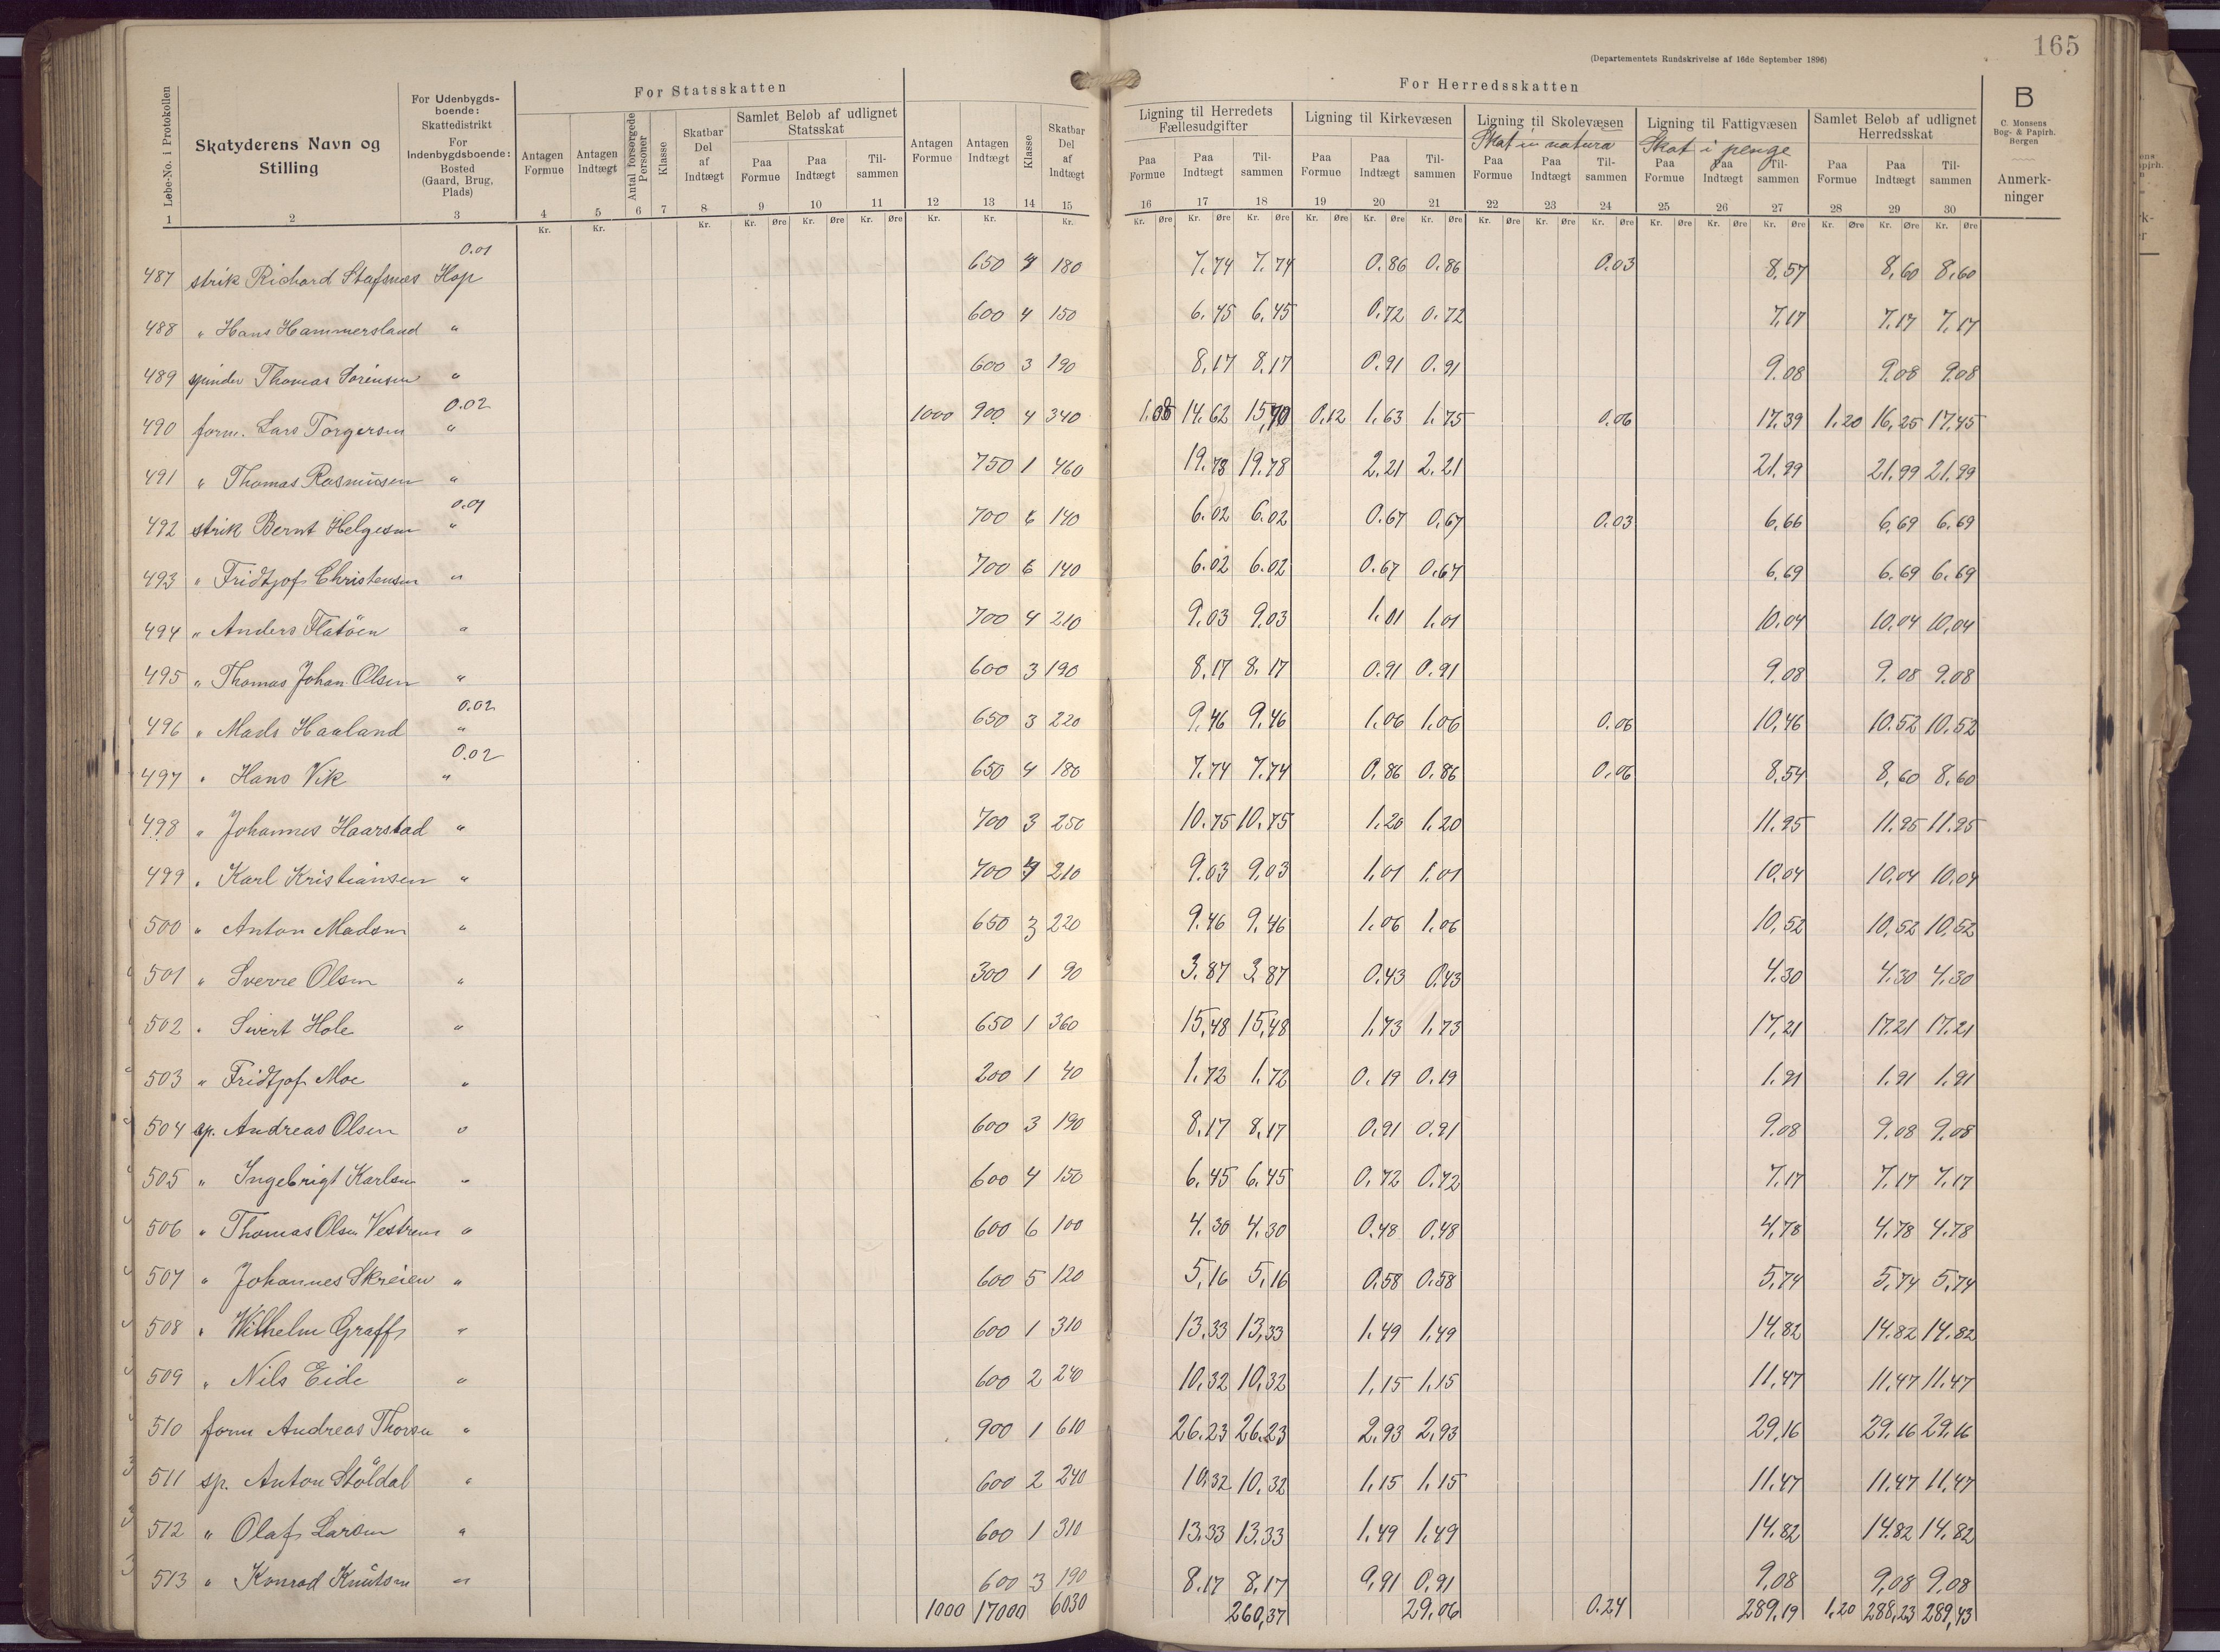 165
(Departementets Rundskrivelse af 16de September 1896)
For Statsskatten
For Herredsskatten
B
C. Monsens Bog- & Papirh. Bergen
Løbe-No. i Protokollen
Skatyderens Navn og Stilling
For Udenbygdsboende: Skattedistrikt For Indenbygdsboende: Bosted (Gaard, Brug, Plads)
Antagen Formue
Antagen Indtægt
Antal forsørgede Personer
Klasse
Skatbar Del af Indtægt
Samlet Beløb af udlignet Statsskat
Paa Formue Paa Indtægt Tilsammen
Antagen Formue
Antagen Indtægt
Klasse
Skatbar Del af Indtægt
Ligning til Herredets Fællesudgifter
Paa Formue Paa Indtægt Tilsammen
Ligning til Kirkevæsen
Paa Formue Paa Indtægt Tilsammen
Ligning til Skolevæsen
Skat in natura
Paa Formue Paa Indtægt Tilsammen
Ligning til Fattigvæsen
Skat i penge
Paa Formue Paa Indtægt Tilsammen
Samlet Beløb af udlignet Herredsskat
Paa Formue Paa Indtægt Tilsammen
Anmerkninger
1 2 3 4 5 6 7 8 9 10 11 12 13 14 15 16 17 18 19 20 21 22 23 24 25 26 27 28 29 30
Kr. Kr. Kr. Kr. Øre Kr. Øre Kr. Øre Kr. Kr. Kr. Kr. Øre Kr. Øre Kr. Øre Kr. Øre Kr. Øre Kr. Øre Kr. Øre Kr. Øre Kr. Øre Kr. Øre Kr. Øre Kr. Øre Kr. Øre Kr. Øre Kr. Øre
0.01
487 strik Richard Stafsnæs Hop 650 4 180 7.74 7.74 0.86 0.86 0.03 8.57 8,60 8,60
488 " Hans Hammersland " 600 4 150 6.45 6,45 0.72 0.72 7,17 7.17 7.17
489 spinder Thomas Sørensen " 600 3 190 8,17 8.17 0.91 0.91 9.08 9.08 9.08
0.02
490 form. Lars Torgersen " 1000 900 4 340 1.08 14.62 15,70 0.12 1.63 1.75 0.06 17.39 1.20 16,25 17.45
491 " Thomas Rasmüssen " 750 1 460 19.78 19.78 2.21 2.21 21.99 21.99 21.99
0.01
492 strik Bernt Helgesen " 700 6 140 6.02 6.02 0.67 0,67 0.03 6,66 6,69 6.69
493 " Fridtjof Christensen " 700 6 140 6.02 6.02 0.67 0.67 6.69 6.69 6.69
494 " Anders Flatöen " 700 4 210 9.03 9.03 1.01 1.01 10.04 10.04 10,04
495 " Thomas Johan Olsen " 600 3 190 8,17 8.17 0.91 0.91 9.08 9.08 9.08
0.02
496 " Mads Haaland " 650 3 220 9.46 9.46 1.06 1,06 0.06 10,46 10.52 10.52
0.02
497 " Hans Vik " 650 4 180 7.74 7.74 0.86 0.86 0.06 8.54 8,60 8,60
498 " Johannes Haarstad " 700 3 250 10.75 10.75 1.20 1.20 11.95 11.95 11.95
499 " Karl Kristiansen " 700 4 210 9.03 9.03 1.01 1.01 10.04 10,04 10.04
500 " Anton Madsen " 650 3 220 9.46 9,46 1.06 1.06 10,52 10,52 10,52
501 " Sverre Olsen " 300 1 90 3.87 3,87 0.43 0.43 4.30 4.30 4.30
502 " Sivert Hole " 650 1 360 15,48 15,48 1.73 1.73 17,21 17.21 17.21
503 " Fridtjof Moe " 200 1 40 1.72 1.72 0.19 0.19 1.91 1.91 1.91
504 sp. Andreas Olsen " 600 3 190 8.17 8,17 0.91 0.91 9.08 9.08 9.08
505 " Ingebrigt Karlsen " 600 4 150 6,45 6,45 0,72 0.72 7.17 7.17 7.17
506 " Thomas Olsen Vestrem " 600 6 100 4.30 4.30 0.48 0,48 4,78 4.78 4.78
507 " Johannes Skreien " 600 5 120 5,16 5,16 0.58 0.58 5.74 5,74 5,74
508 " Wilhelm Graff " 600 1 310 13.33 13,33 1.49 1,49 14,82 14.82 14.82
509 " Nils Eide " 600 2 240 10.32 10,32 1,15 1,15 11,47 11,47 11.47
510 form Andreas Thorsen " 900 1 610 26.23 26.23 2,93 2,93 29,16 29,16 29,16
511 sp. Anton Støldal " 600 2 240 10.32 10,32 1,15 1,15 11.47 11.47 11,47
512 " Olaf Larsen " 600 1 310 13.33 13.33 1,49 1,49 14.82 14.82 14,82
513 " Konrad Knütsen " 600 3 190 8.17 8,17 0,91 0,91 9,08 9,08 9.08
1000 17000 6030 260,37 29,06 0.24 289,19 1,20 288,23 289,43